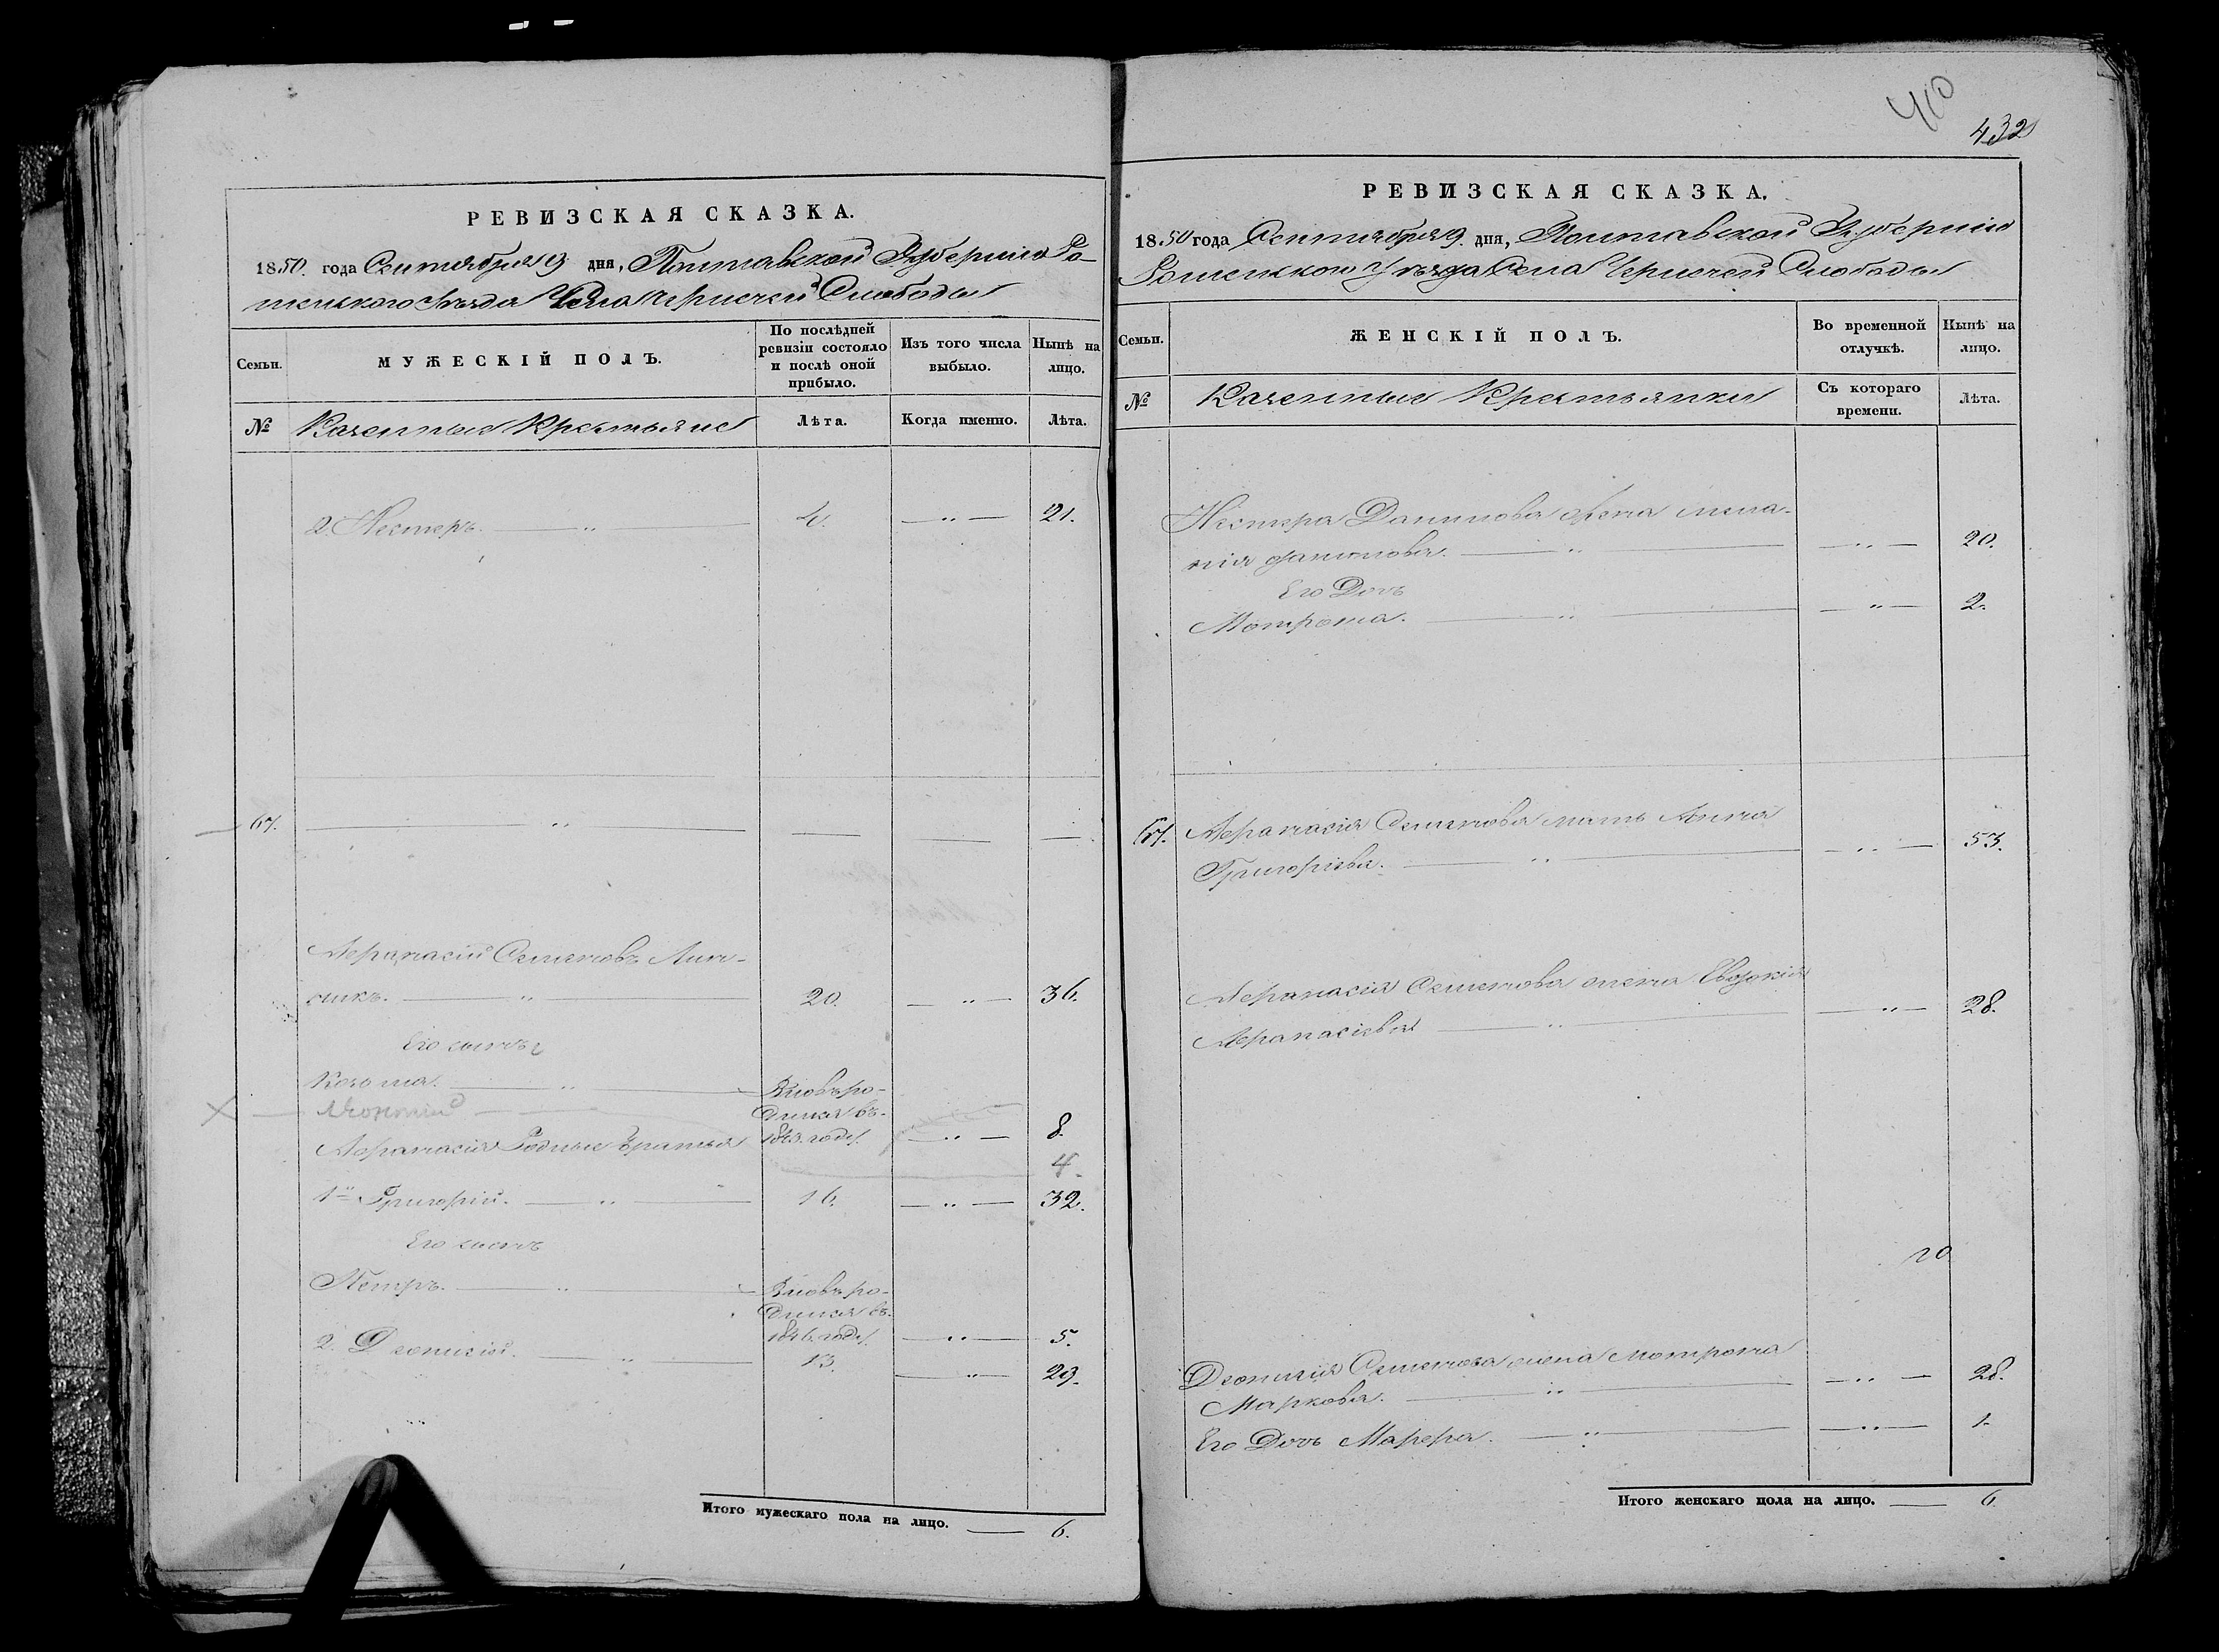 РЕВИЗСКАЯ СКАЗКА.
1850. года Сентября 9 дня, Полтавской Губернiи Ро-
менского Уѣзда Села Чернечей Слободы
Семьи.
МУЖЕСКІЙ ПОЛЪ.
По послѣдней ревизіи состояло и послѣ оной прибыло.
Изъ того числа выбыло.
Нынѣ на лицо.
№
Казенные Крестьяне
Лѣта.
Когда именно.
Лѣта.
2. Нестеръ. 4. 21.
67.
Афанасiй Семеновъ
20. 36.
Его сынъ
Козьма. Вновь ро-
Леонтiй дился въ
Афанасiя Родные братья 1843. году. 8.
4
1й Григорiй. 16. 32.
Его сынъ
Петръ. Вновь ро-
дился въ
1846. году. 5.
2. Дeонисiй. 13. 29.
Итого мужескаго пола на лицо. 6.
40
432
РЕВИЗСКАЯ СКАЗКА.
1850 года Сентября 9. дня, Полтавской Губернiи
Роменского Уѣзда Села Чернечей Слободы
Семьи.
ЖЕНСКІЙ ПОЛЪ.
Во временной отлучкѣ.
Нынѣ на лицо.
№
Казенные Крестьянки
Съ котораго времени.
Лѣта.
Нестера Данилова жена Мела-
нiя Данилова. 20.
Его Дочь
Мотрона. 2.
67. Афанасiя Семенова мать Анна
Григорiева. 53.
Афанасiя Семенова жена Евдокiя
Афанасiева 28.
20
Дeонисiя Семенова жена Мотрона
Маркова. 28.
Его Дочь Марфа. 1.
Итого женскаго пола на лицо. 6.